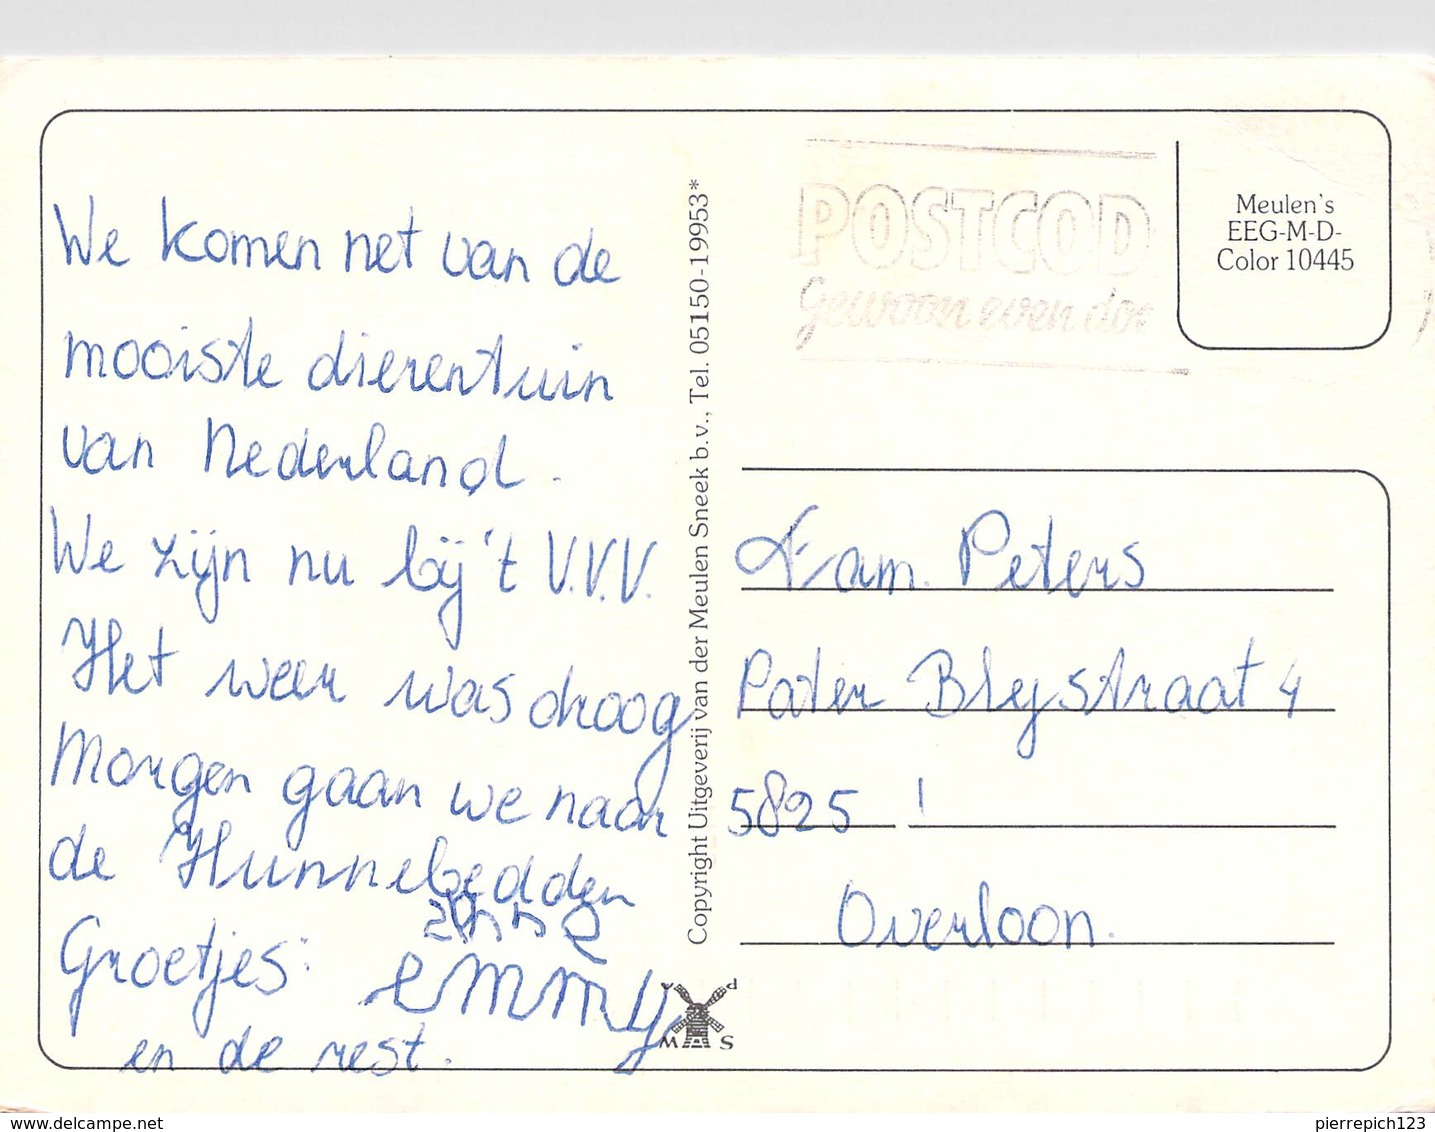 We komen net van de
mooiste dierentuin
van Nederland.
We zijn nu bij 't V.V.V.
Het weer was droog
Morgen gaan we naar
de Hunnebedden
Groetjes:
emmy
en de rest.
Copyright Uitgeverij van der Meulen Sneek b.v., Tel. 05150-19953*
POSTCOD
Gewoon even doe
Meulen's
EEG-M-D-
Color 10445
Fam. Peters
Pater Blijstraat 4
5825
Overloon.
www.delcampe.net
pierrepich123